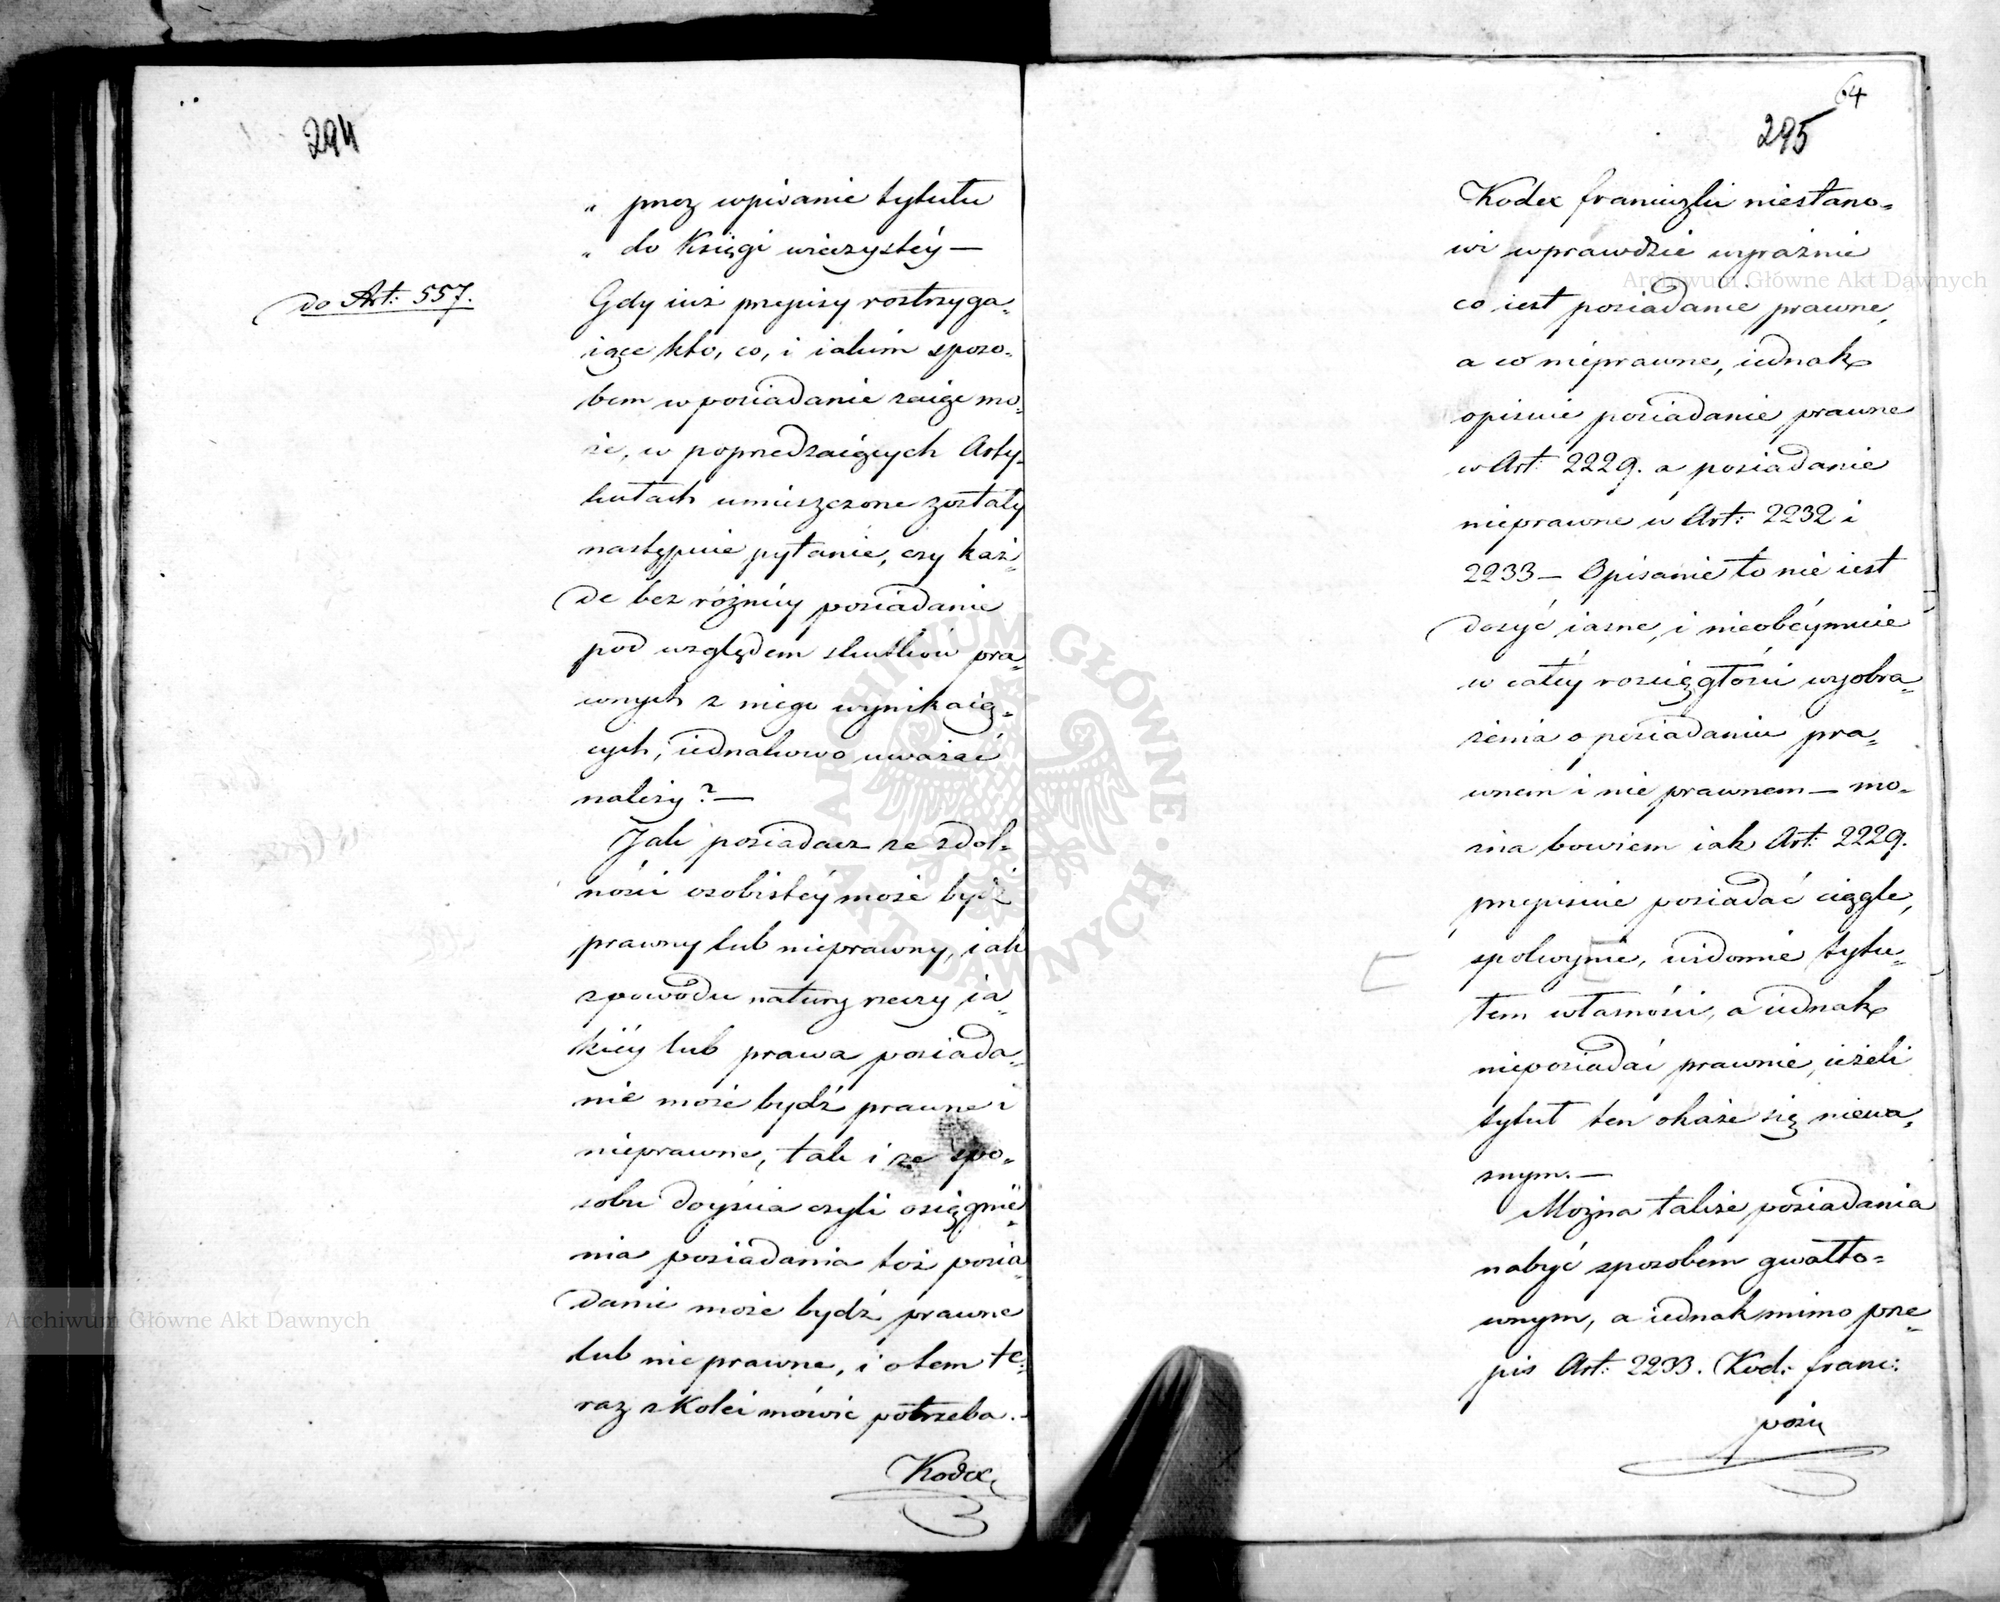 294
„ przez wpisanie tytułu
„ do Księgi wieczystéy —
do Art: 557.
Gdy iuż przepisy roztrzyga=
iące kto, co, i iakim sposo=
bem w posiadanie zaiąć mo=
że, w poprzedzaiących Arty=
kułach umieszczone zostały
następuie pytanie, czy każ=
de bez różnicy posiadanie
pod względem skutków pra=
wnych z niego wynikaią=
cych, iednakowo uważać
należy? —
Jak posiadacz ze zdol=
ności osobistéy może bydź
prawny lub nieprawny, iak
z powodu natury rzeczy ia=
kiéy lub prawa posiada=
nie może bydź prawne i
nieprawne, tak i ze spo=
sobu doyścia czyli osiągnie=
nia posiadania toż posia=
danie może bydź prawne
lub nieprawne, i o tem te=
raz z kolei mówić potrzeba. —
Kodex
64
295
Kodex francuzki niestano=
wi wprawdzie wyraźnie
co iest posiadanie prawne,
a co nieprawne, iednak
opisuie posiadanie prawne
w Art: 2229. a posiadanie
nieprawne w Art: 2232 i
2233 — Opisanie to nie iest
dosyć iasne, i nieobéymuie
w całéy rozciągłości wyobra=
żenia o posiadaniu pra=
wnem i nie prawnem — mo=
żna bowiem iak Art: 2229.
przepisuie posiadać ciągle,
spokoynie, widomie tytu=
łem własności, a iednak
nieposiadać prawnie, ieżeli
tytuł ten okaże się niewa=
żnym. —
Można także posiadania
nabyć sposobem gwałto=
wnym, a iednak mimo prze=
pis Art: 2233. Kod: franc:
posia
Archiwum Główne Akt Dawnych
Archiwum Główne Akt Dawnych
ARCHIWUM GŁÓWNE AKT DAWNYCH